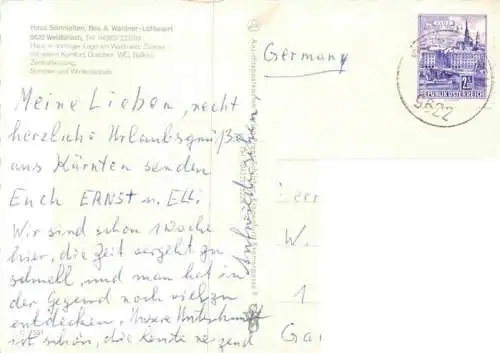 Haus Sonnleiten, Bes. A. Waldner-Löffanert
9622 Weißbriach, Tel.
Haus in sonniger Lage am Waldrand. Zimmer
mit allem Komfort, Duschen, WC, Balkon,
Zentralheizung.
Sommer und Winterbetrieb
Germany
REPUBLIK ÖSTERREICH
Meine Lieben, recht
herzliche Urlaubsgrüße
aus Kärnten senden
Euch ERNST u. Elli.
Wir sind schon 1 Woche
hier, die Zeit vergeht zu
schnell, und man hat in
der Gegend noch viel zu
entdecken. Unsere Unterkunft
ist schön, die Leute reizend
Aufwiedersehen
W.
1
Ga